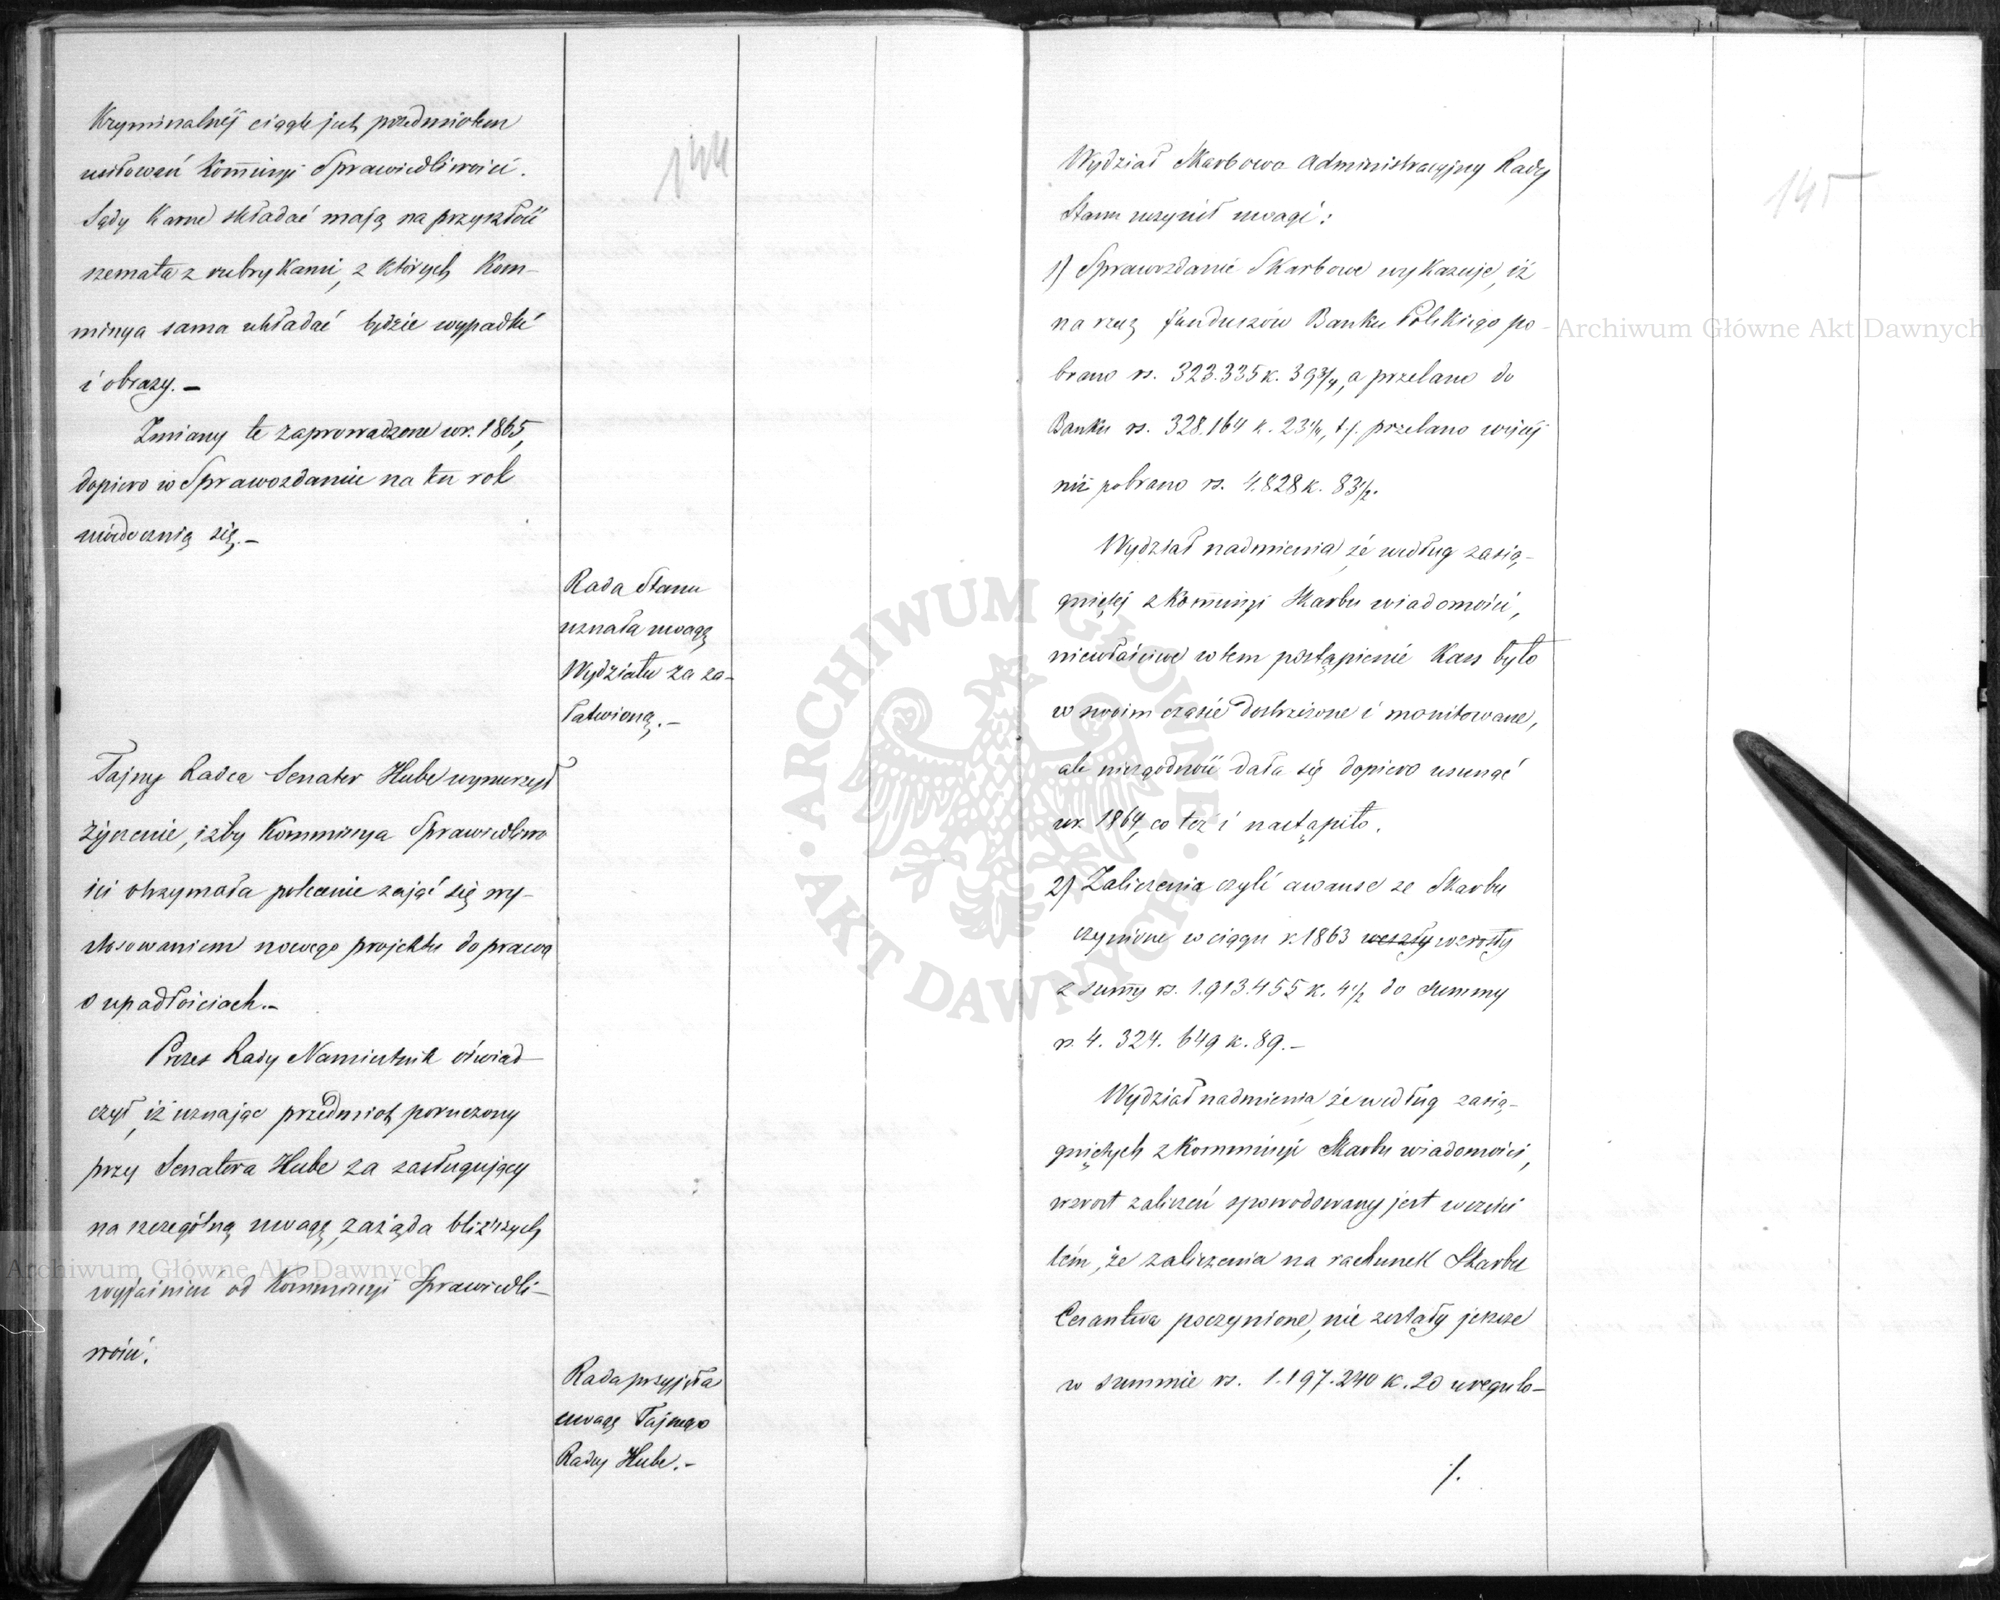 144
Kryminalnéj ciągle jest przedmiotem
usiłowań Kommissyi Sprawiedliwości.
Sądy Karne składać mają na przyszłość
szemata z rubrykami, z których Kom-
missya sama układać będzie wypadki
i obrazy.-
Zmiany te zaprowadzone w r. 1865,
dopiero w Sprawozdaniu na ten rok
uwidocznią się.-
Rada Stanu
uznała uwagę
Wydziału za za-
łatwioną.-
Tajny Radca Senator Hube wynurzył
życzenie, iżby Kommissya Sprawiedliwo
ści otrzymała polecenie zająć się wy-
stosowaniem nowego projektu do prawa
o upadłościach.-
Prezes Rady Namiestnik oświad-
czył, iż uznając przedmiot poruszony
przez Senatora Hube za zasługujący
na szczególną uwagę, zażąda bliższych
wyjaśnień od Kommissyi Sprawiedli-
wości.
Rada przyjęła
uwagę Tajnego
Radcy Hube.-
145
Wydział Skarbowo Administracyjny Rady
Stanu uczynił uwagi:
1) Sprawozdanie Skarbowe wykazuje, iż
na rzecz funduszów Banku Polskiego po-
brano rs. 323.335 k. 39 3/4, a przelano do
Banku rs. 328.164 k. 23 1/4, t.j. przelano więcéj
niż pobrano rs. 4.828 k. 83 1/2.
Wydział nadmienia, że według zasią-
gniętéj z Kommissyi Skarbu wiadomości,
niewłaściwe w tem postąpienie Kass było
w swoim czasie dostrzeżone i monitowane,
ale niezgodność dała się dopiero usunąć
w r. 1864, co też i nastąpiło.
2) Zaliczenia czyli awanse ze Skarbu
czynione w ciągu r. 1863 weszły wzrosły
z summy rs. 1.913.455 k. 4 1/2 do summy
rs. 4.324.649 k. 89.-
Wydział nadmienia, że według zasią-
gniętych z Kommissyi Skarbu wiadomości,
wzrost zaliczeń spowodowany jest w części
tém, że zaliczenia na rachunek Skarbu
Cesarstwa poczynione, nie zostały jeszcze
w summie rs. 1.197.240 k. 20 uregulo-
./.
Archiwum Główne Akt Dawnych
Archiwum Główne Akt Dawnych
ARCHIWUM GŁÓWNE · AKT DAWNYCH ·